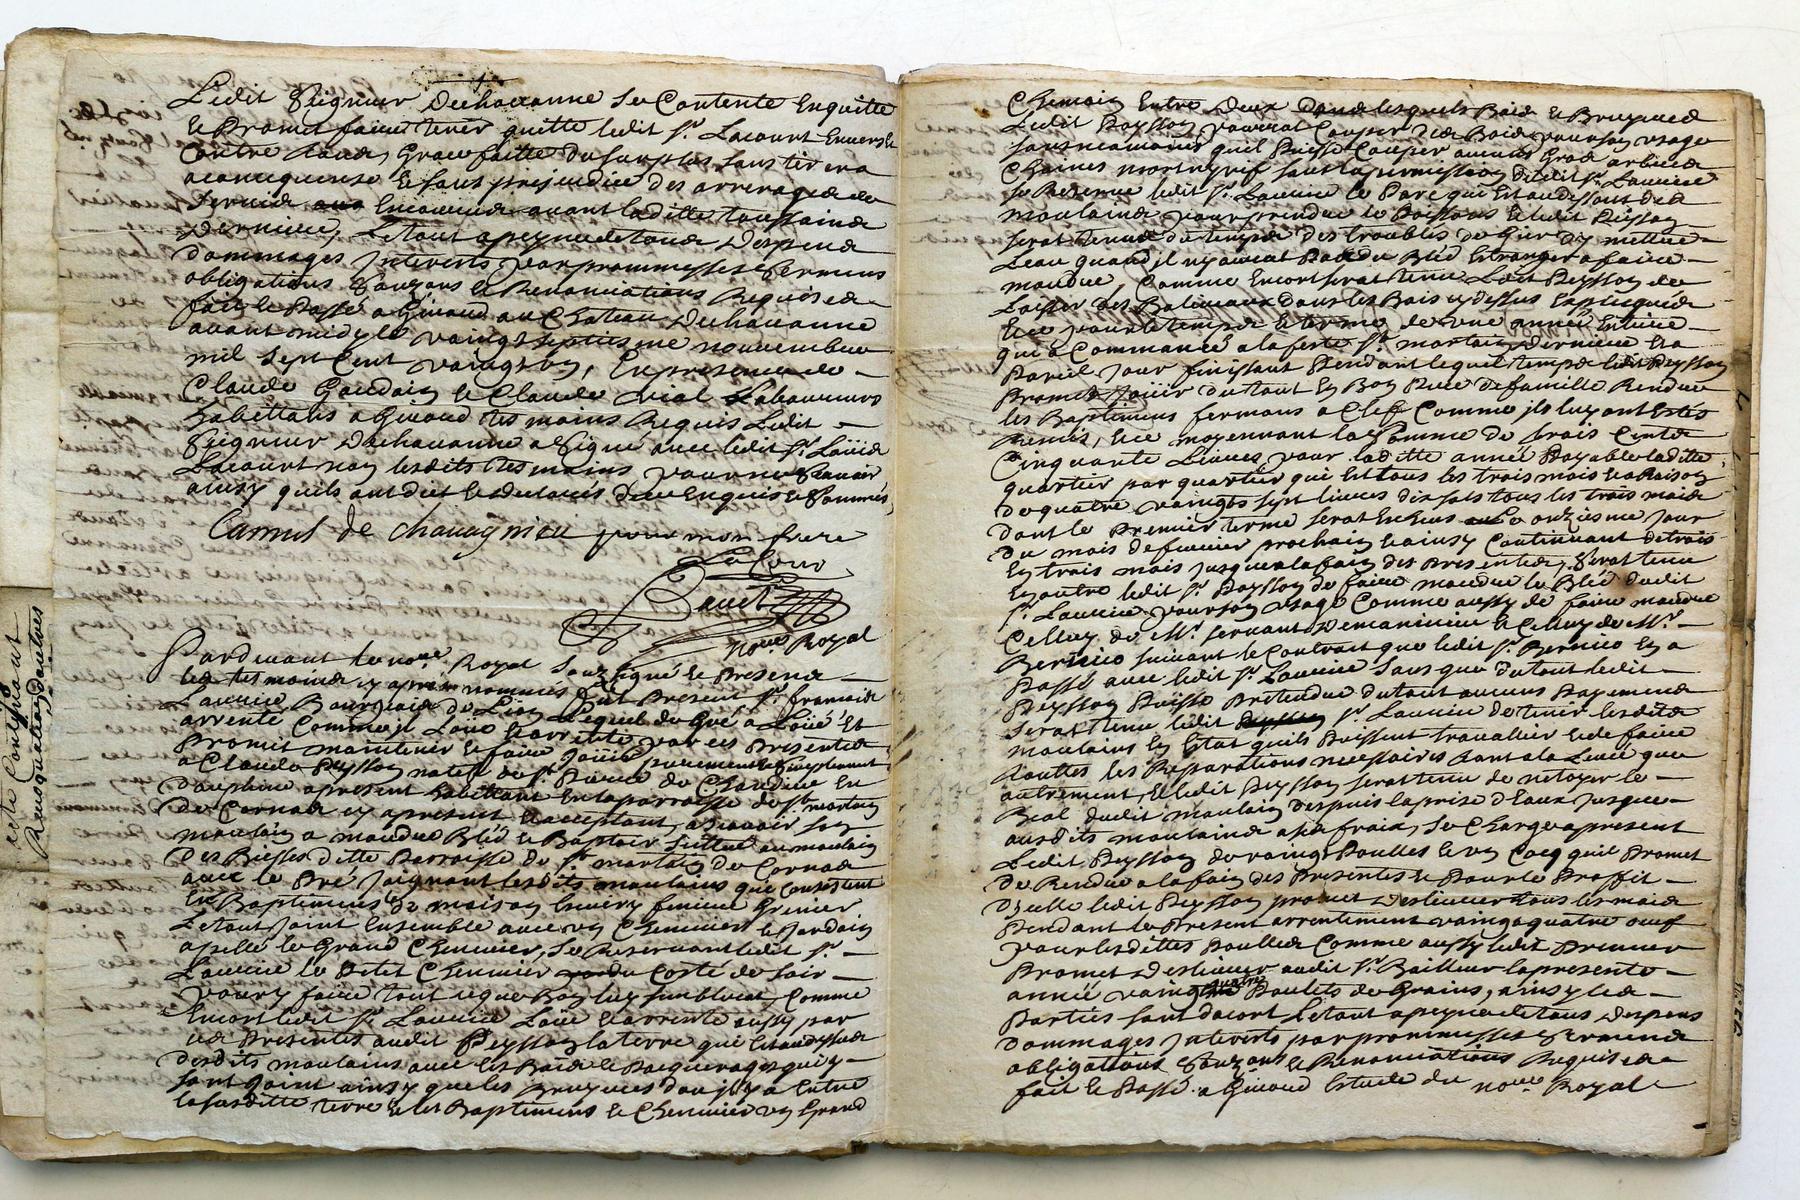 Ledit Seigneur Dechavanne Se Contente Enquitte
et Promet faire tenir quitte ledit Sr. Lacourt Envers et
Contre tous, Grace faitte du surplus sans tirer a
consequense et sans prejudice des arrerages de
Servis Encourus avant laditte toussains
Derniere, Le tout a peyne de tous Despens
dommages Interests par prommesses Sermens
obligations Souzons et Renonciations Requises
fait et Passé a Givaud au Chateau Dechavanne
avant midy le vaingt septiesme nouvembre
mil sept Cent vaingt En presence de
Claude Gaudain et Claude Vial Laboureurs
habittans a Givaud tesmoins Requis Ledit
Seigneur Dechavanne a Signé avec ledit Sr. Loüis
Lacourt non lesdits tesmoins pour ne Scavoir
ainsy quils ont dit et declarés de ce Enquis et Sommés,
Camus de chavagnieu pour mon frere
La Cour
nore. Royal
Pardevant le nore. Royal Souzsigné et Presens
les tesmoins cy apres nommés fut Present Sr. francois
Laurice Bourgeois de Lion Lequel de Gré a Loüé et
arrenté Comme il Loüe et arrente par ces Presentes
Promet maintenir et faire Joüir purement et simplement
a Claude Peysson natif de St. Pierre de Chandieu en
Dauphiné apresent habittant En la parroisse de St. martin
de Cornas cy apresent et acceptant, a scavoir son
moulain a moudre Bled et Baptoir Sittué au moulain
des Biesses ditte Parroisse de St. martain de Cornas
avec le Pré Joignant lesdits moulains que Consistent
En Baptimens de maison Cuvery feniere Grenier
Le tout Joint Ensemble avec un Chenevier et Jardain
apellé le Grand Chenevier, Se Reservant ledit Sr.
Laurice le Petit Chenevier du Costé de soir
pour y faire tout ce que Bon luy semblera, Comme
Encor ledit Sr. Laurice Loüe et arrente aussy par
ces Presentes audit Peysson la terre qui Est au dessus
desdits moulains avec les Bois et Pacquerages qui y
sont Joint ainsy que les Bruyeres Entre
la susditte terre et les Baptimens et Chenevier un Grand
Chemain Entre Deux dans lesquels Bois et Bruyeres
Ledit Peysson pourrat Couper des Bois pour son usage
sans neamoins quil Puisse Couper aucuns Gros arbres
Chaines mort ny vif sans la permission dudit Sr. Laurice
Se Reserve ledit Sr. Laurice le Parc qui Est au dessous des
moulains pour prendre le Poissons Et ledit Peysson
serat tenus du temps des troubles de Gier dy mettre
Leau quand il ny aurat Pas du Bled Etranger a faire
moudre, Comme Encor serat tenu Ledit Peysson de
Laisser des Baliveaux dans les Bois cy dessus Expliqués
Et ce pour le temps et terme de une année Entiere
qui a Commancé a la feste St. martain derniere Et a
Pareil Jour finissant Pendant lequel temps ledit Peysson
Promet Joüir du tout En Bon Pere de famille Rendre
les Baptimens fermans a Clef Comme ils luy ont Estés
Remis, Et ce moyennant la Somme de trois Cents
Cinquante Livres pour laditte année Payable laditte
quartier par quartier qui Est tous les trois mois et a Raison
de quatre vaingts sept livres dix sols tous les trois mois
dont le Premier terme serat Echus Le onziesme Jour
du mois de fevrier prochain et ainsy Continuant de trois
En trois mois jusques a la fain des Presentes, Serat tenu
En outre ledit Sr. Peysson de faire moudre le Bled dudit
Sr. Laurice pour son usage Comme aussy de faire moudre
Celluy de Mr. Servant et Celluy de Mr.
Bernico suivant le Contrait que ledit Sr. Bernico En a
Passé avec ledit Sr. Laurice Sans que du tout ledit
Peysson Puisse Pretendre du tout aucuns Payemens
Serat tenu ledit Sr. Laurice de tenir lesdits
moulains En Etat quils Puissent travallier et de faire
touttes les Reparations necessaires tant a la Levée que
autrement, Et ledit Peysson serat tenu de netoyer le
Beal dudit moulain Despuis la prise d'Eaux Jusques
ausdits moulains a ses fraix, Se Charge apresent
Ledit Peysson de vaingt Poulles et un Cocq quil Promet
de Rendre a la fain des Presentes et Pour le Proffit
Dicelle ledit Peysson promet Deslivrer tous les mois
Pendant le Present arrentement vaingt quatre oeuf
pour lesdittes Poulles Comme aussy ledit Preneur
Promet Deslivrer audit Sr. Bailleur la presente
année vaingt quatre Poulets de Grains, ainsy les
Parties sont dacort Le tout a peyne de tous Despens
dommages Interests par prommesses Sermens
obligations Souzons et Renonciations Requises
fait et Passé a Givaud Estude du nore. Royal